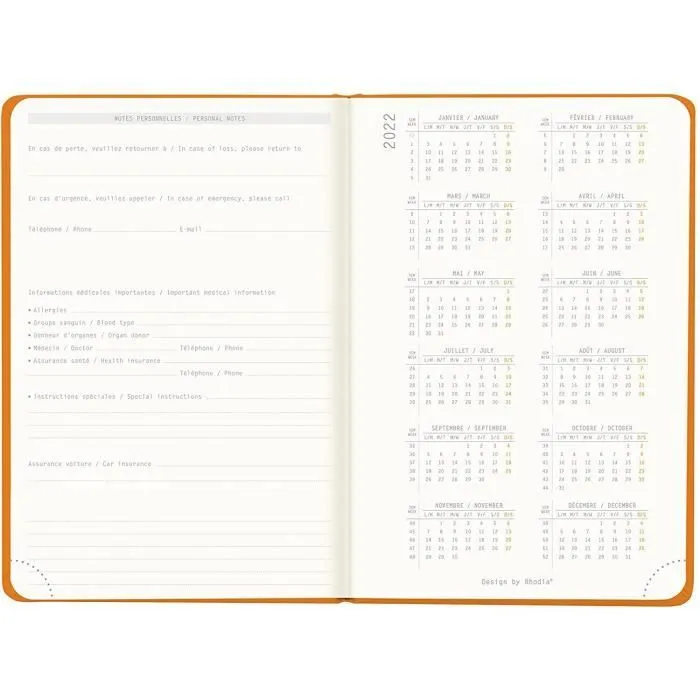 NOTES PERSONNELLES / PERSONAL NOTES
En cas de perte, veuillez retourner à / In case of loss, please return to
En cas d'urgence, veuillez appeler / In case of emergency, please call
Téléphone / Phone E-mail
Informations médicales importantes / Important medical information
• Allergies
• Groupe sanguin / Blood type
• Donneur d'organes / Organ donor
• Médecin / Doctor Téléphone / Phone
• Assurance santé / Health insurance
Téléphone / Phone
• Instructions spéciales / Special instructions
Assurance voiture / Car insurance
2022
JANVIER / JANUARY
SEM WEEK L/M M/T M/W J/T V/F S/S D/S
1 2
3 4 5 6 7 8 9
10 11 12 13 14 15 16
17 18 19 20 21 22 23
24 25 26 27 28 29 30
31
FÉVRIER / FEBRUARY
SEM WEEK L/M M/T M/W J/T V/F S/S D/S
1 2 3 4 5 6
7 8 9 10 11 12 13
14 15 16 17 18 19 20
21 22 23 24 25 26 27
28
MARS / MARCH
SEM WEEK L/M M/T M/W J/T V/F S/S D/S
1 2 3 4 5 6
7 8 9 10 11 12 13
14 15 16 17 18 19 20
21 22 23 24 25 26 27
28 29 30 31
AVRIL / APRIL
SEM WEEK L/M M/T M/W J/T V/F S/S D/S
1 2 3
4 5 6 7 8 9 10
11 12 13 14 15 16 17
18 19 20 21 22 23 24
25 26 27 28 29 30
MAI / MAY
SEM WEEK L/M M/T M/W J/T V/F S/S D/S
1
2 3 4 5 6 7 8
9 10 11 12 13 14 15
16 17 18 19 20 21 22
23 24 25 26 27 28 29
30 31
JUIN / JUNE
SEM WEEK L/M M/T M/W J/T V/F S/S D/S
1 2 3 4 5
6 7 8 9 10 11 12
13 14 15 16 17 18 19
20 21 22 23 24 25 26
27 28 29 30
JUILLET / JULY
SEM WEEK L/M M/T M/W J/T V/F S/S D/S
1 2 3
4 5 6 7 8 9 10
11 12 13 14 15 16 17
18 19 20 21 22 23 24
25 26 27 28 29 30 31
AOÛT / AUGUST
SEM WEEK L/M M/T M/W J/T V/F S/S D/S
1 2 3 4 5 6 7
8 9 10 11 12 13 14
15 16 17 18 19 20 21
22 23 24 25 26 27 28
29 30 31
SEPTEMBRE / SEPTEMBER
SEM WEEK L/M M/T M/W J/T V/F S/S D/S
1 2 3 4
5 6 7 8 9 10 11
12 13 14 15 16 17 18
19 20 21 22 23 24 25
26 27 28 29 30
OCTOBRE / OCTOBER
SEM WEEK L/M M/T M/W J/T V/F S/S D/S
1 2
3 4 5 6 7 8 9
10 11 12 13 14 15 16
17 18 19 20 21 22 23
24 25 26 27 28 29 30
31
NOVEMBRE / NOVEMBER
SEM WEEK L/M M/T M/W J/T V/F S/S D/S
1 2 3 4 5 6
7 8 9 10 11 12 13
14 15 16 17 18 19 20
21 22 23 24 25 26 27
28 29 30
DÉCEMBRE / DECEMBER
SEM WEEK L/M M/T M/W J/T V/F S/S D/S
1 2 3 4
5 6 7 8 9 10 11
12 13 14 15 16 17 18
19 20 21 22 23 24 25
26 27 28 29 30 31
Design by Rhodia®